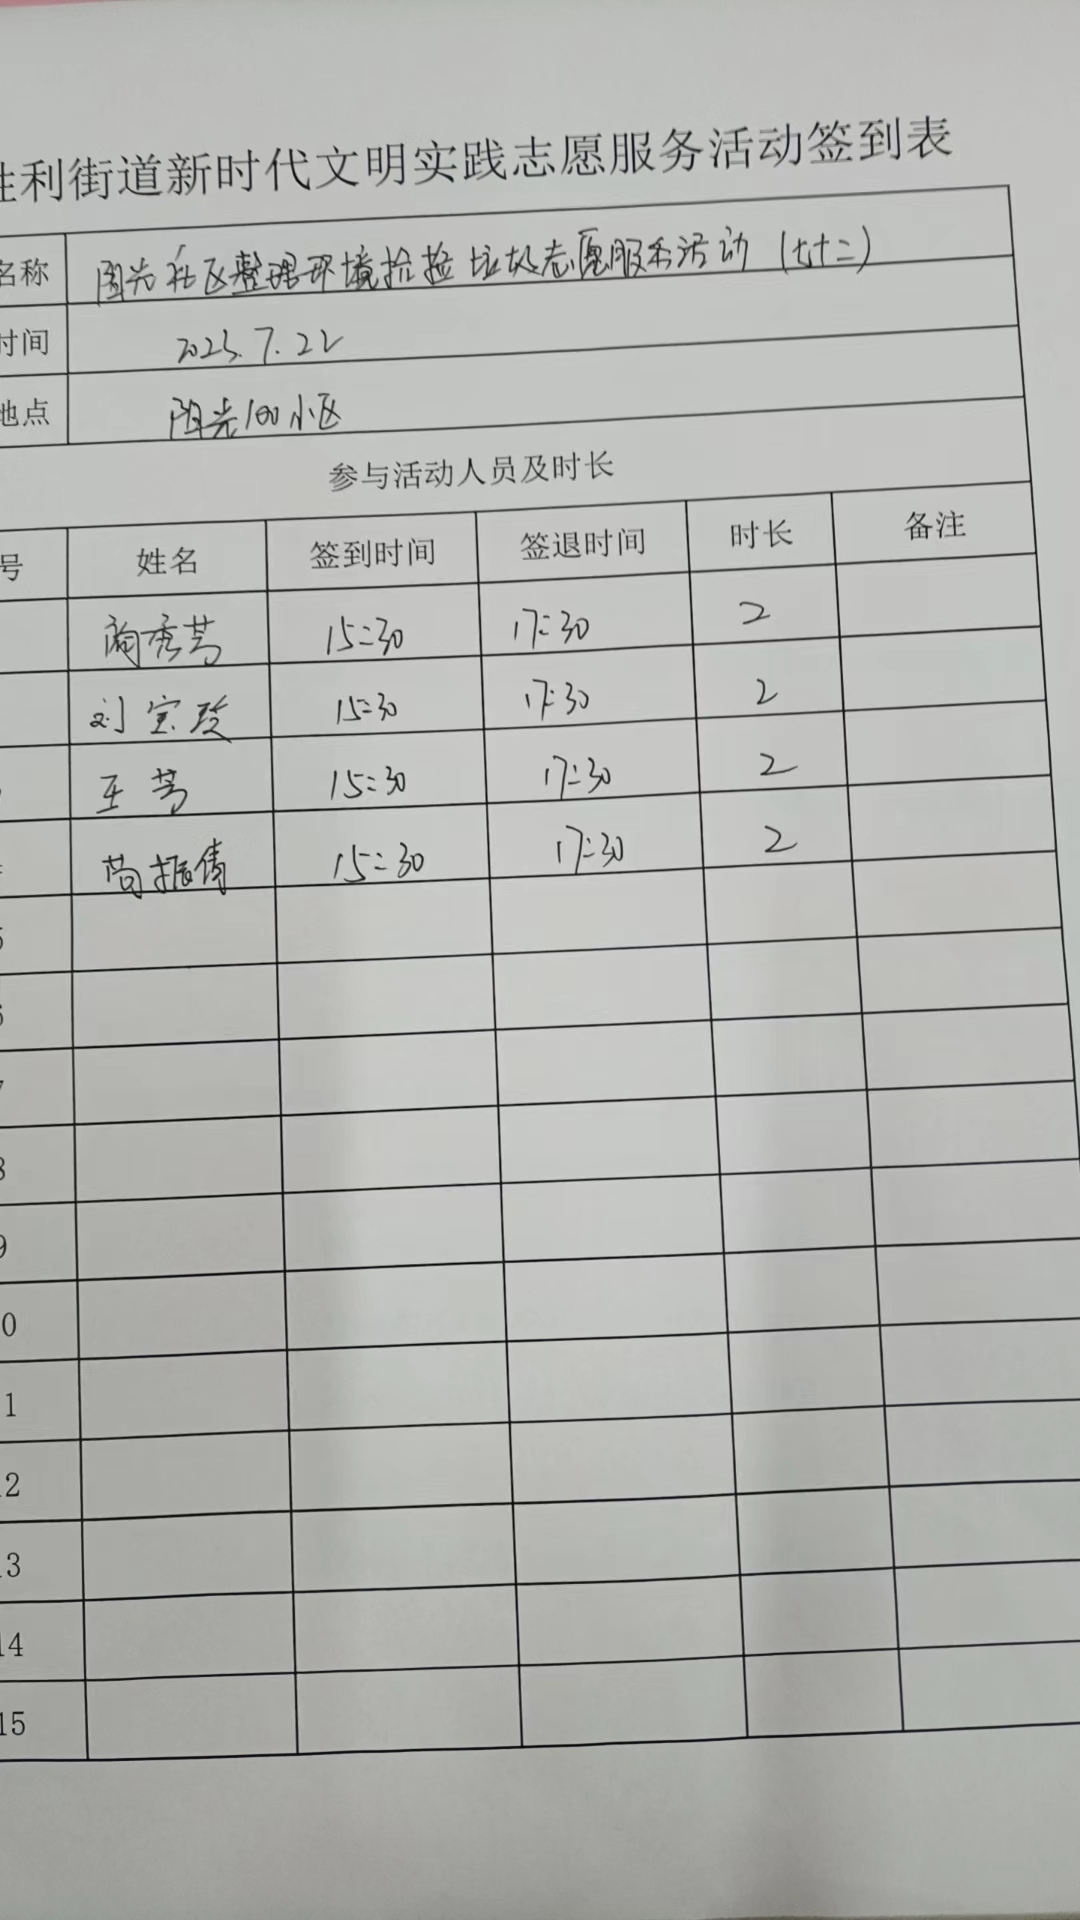 胜利街道新时代文明实践志愿服务活动签到表
名称 阳光社区整理环境捡捡垃圾志愿服务活动(七十二)
时间 2023.7.22
地点 阳光100小区
参与活动人员及时长
号 姓名 签到时间 签退时间 时长 备注
秀芳 15:30 17:30 2
刘宝 15:30 17:30 2
王芳 15:30 17:30 2
苟振倩 15:30 17:30 2
5
6
7
8
9
10
11
12
13
14
15